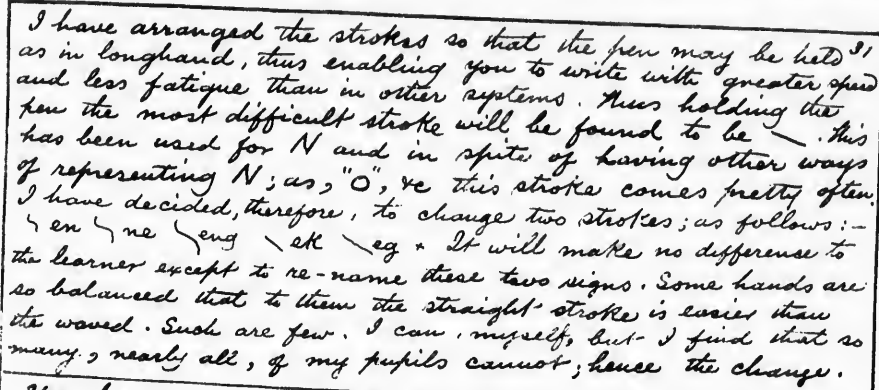 I have arranged the strokes so that the pen may be held 31
as in longhand, thus enabling you to write with greater speed
and less fatigue than in other systems. Thus holding the
pen the most difficult stroke will be found to be \. This
has been used for N and in spite of having other ways
of representing N; as, "O", &c this stroke comes pretty often.
I have decided, therefore, to change two strokes; as follows:-
en ne eng \ ek \ eg. It will make no difference to
the learner except to re-name these two signs. Some hands are
so balanced that to them the straight stroke is easier than
the waved. Such are few. I can, myself, but I find that so
many, nearly all, of my pupils cannot; hence the change.